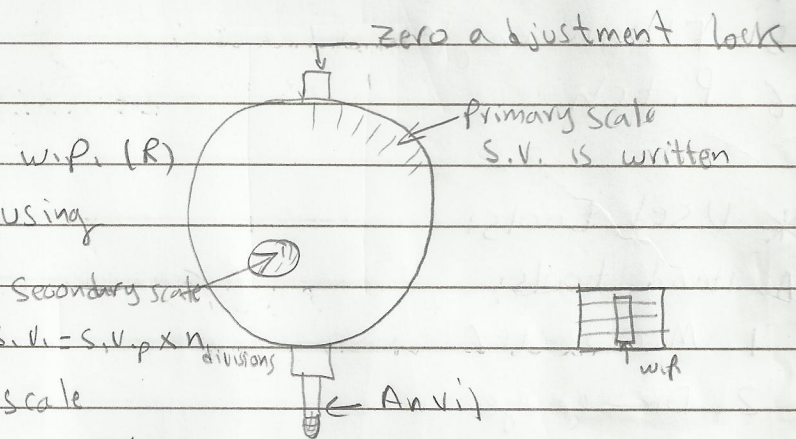 zero adjustment lock
Primary scale
w.p. (R)
S.V. is written
using
Secondary scale
s.v. = s.v.p x n divisions
w.p
scale
Anvil